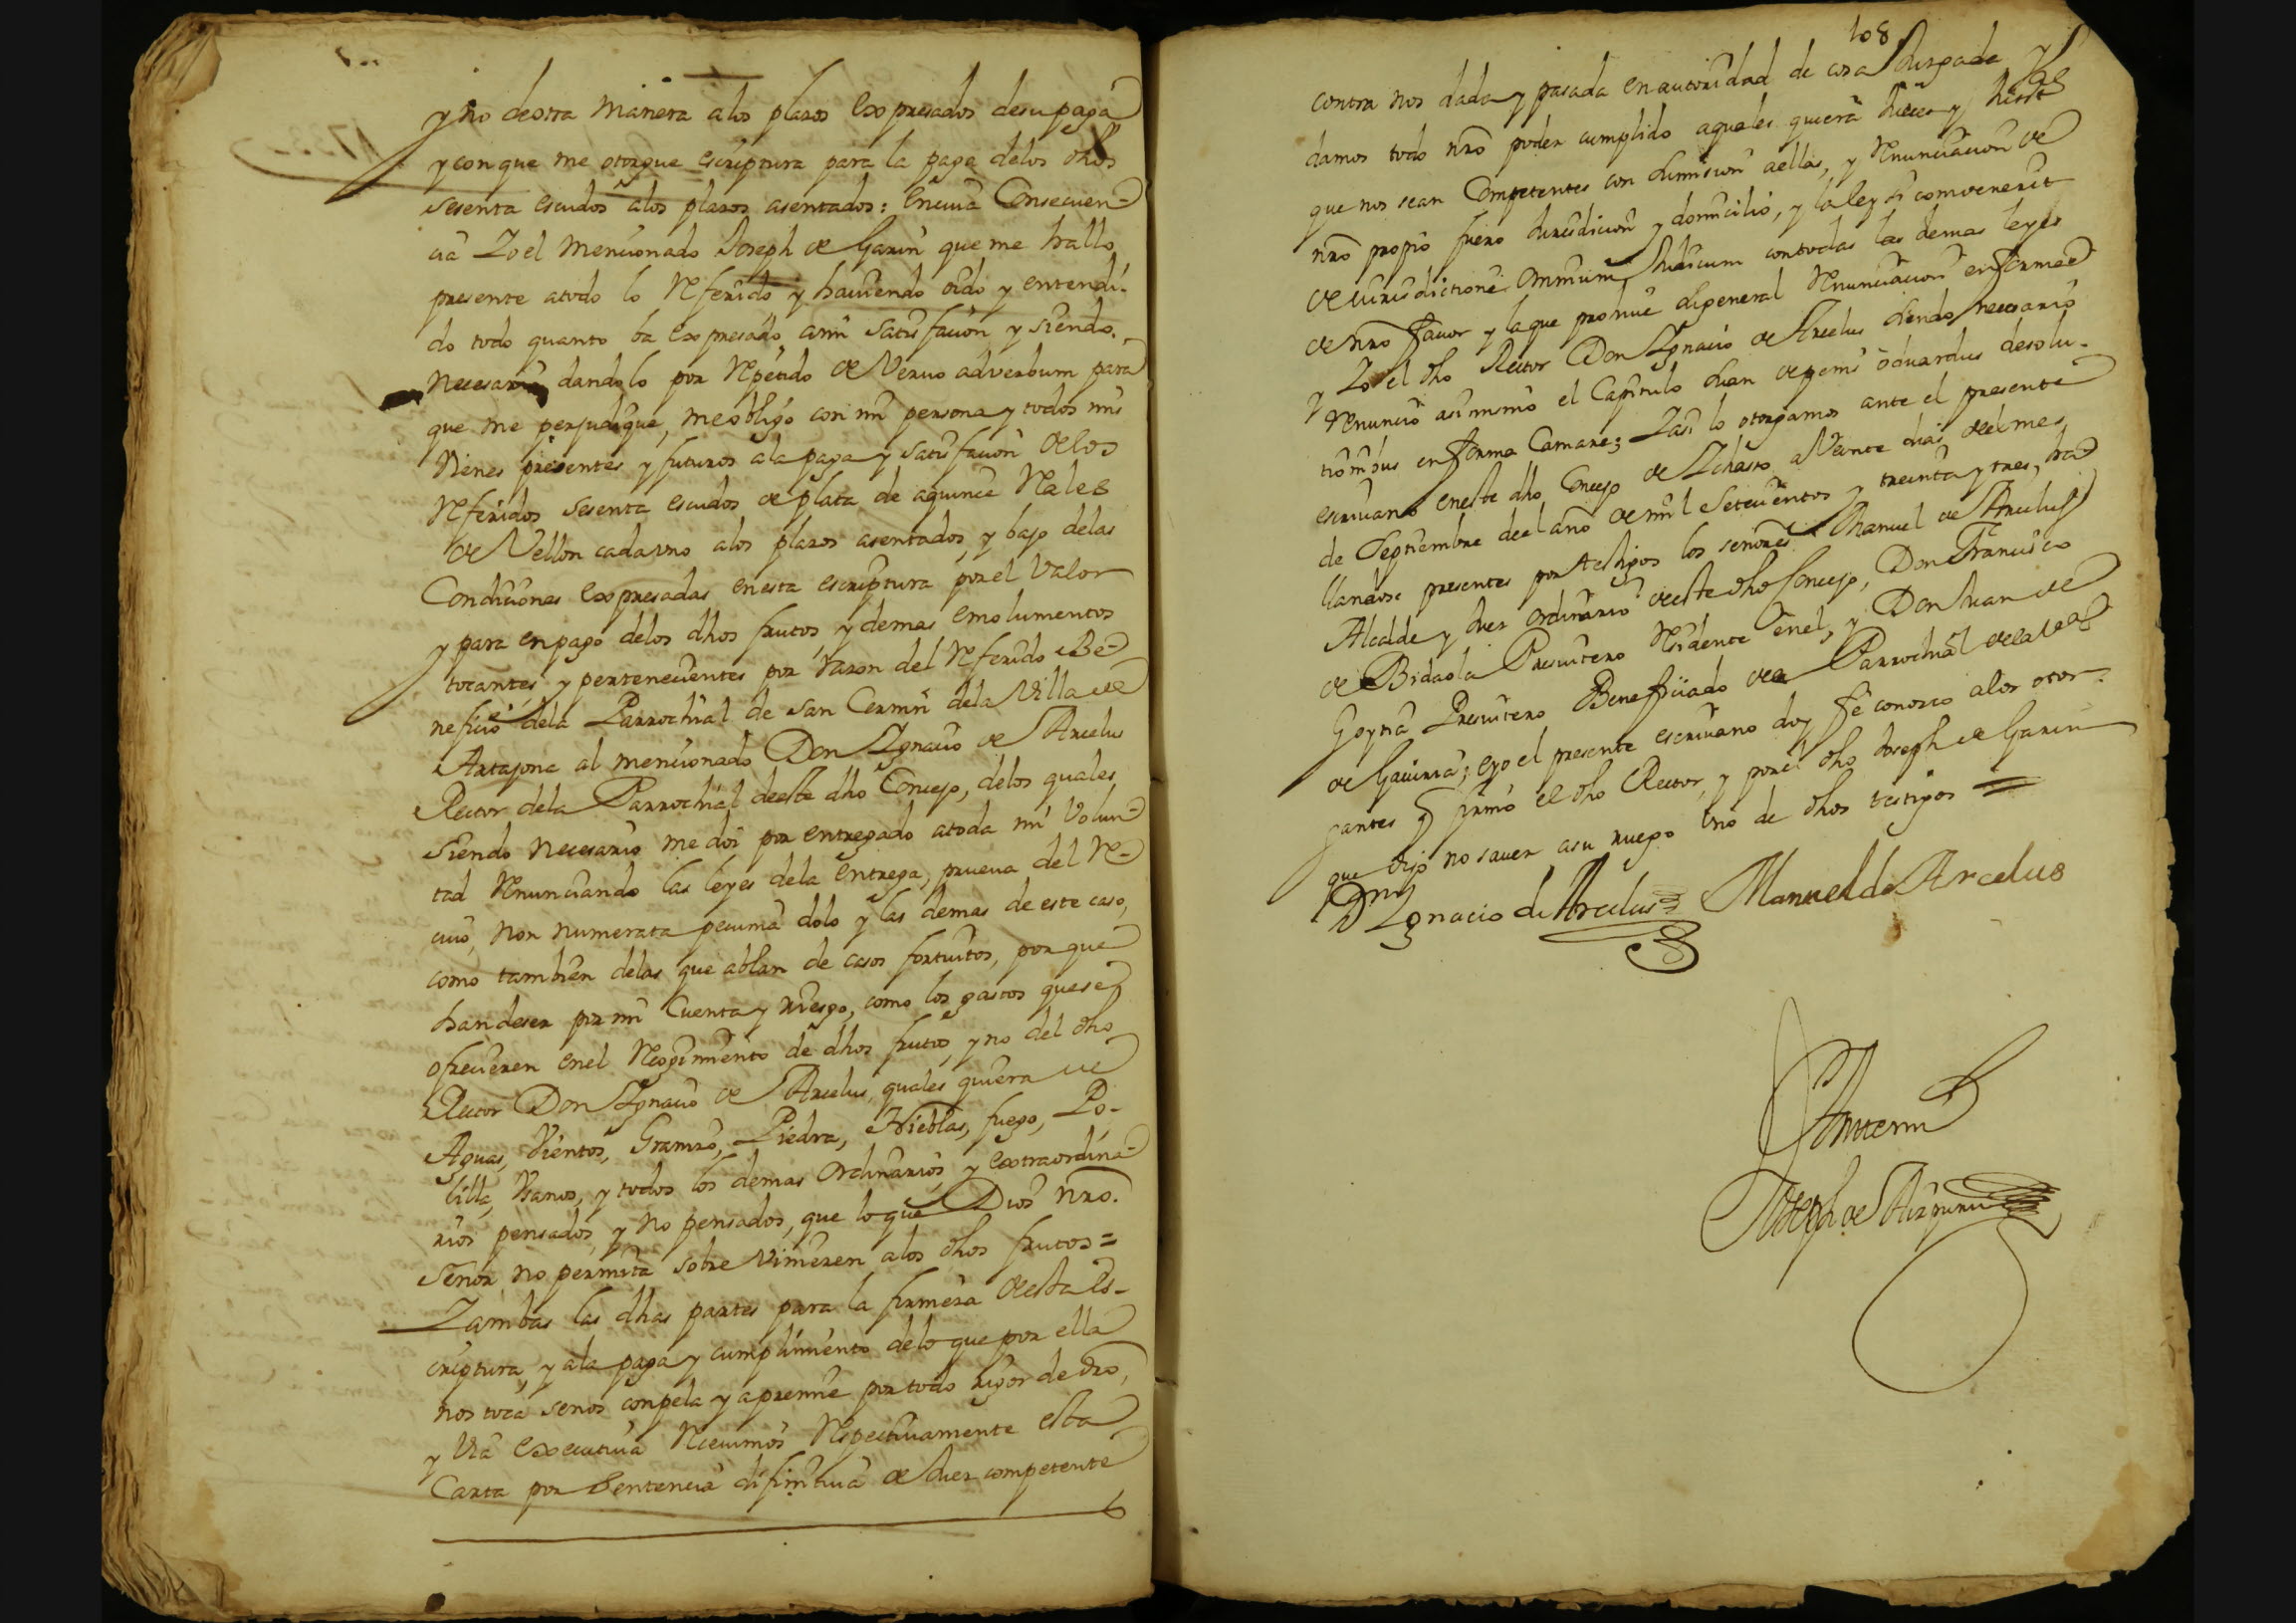 y no de otra manera alos plazos expresados desupaga
y conque me otorgue escriptura para la paga delos dhos
sesenta escudos alos plazos asentados: encuia Consecuen-
cia Yo el mencionado Joseph de Garin que me hallo
presente atodo lo Referido y haviendo oido y entendi-
do todo quanto ba expresado ami satisfacion y siendo
necesario dandolo por Repetido de Vervo adverbum para
que me perjudique, me obligo con mi persona y todos mis
Vienes presentes y futuros ala paga y satisfacion delos
Referidos sesenta escudos de plata de aquince Reales
de Vellon cadauno alos plazos asentados, y bajo delas
Condiciones expresadas enesta escriptura por el Valor
y para en pago delos dhos frutos, y demas emolumentos
tocantes y pertenecientes por razon del Referido Be-
neficio dela Parrochial de San Cernin dela Villa de
Artajona al mencionado Don Ignacio de Arcelus
Rector dela Parrochial deeste dho Concejo, delos quales
siendo necesario me doi por entregado atoda mi Volun-
tad Renunciando las leyes dela entrega, prueva del Re-
civo, non numerata pecunia dolo y las demas de este caso,
como tambien delas que ablan de casos fortuitos, porque
handeser por mi Cuenta y riesgo, como los gastos quese
ofrecieren enel Recogimiento de dhos frutos, y no del dho
Rector Don Ignacio de Arcelus, quales quiera de
Aguas, Vientos, Granizo, Piedra, Nieblas, fuego, Po-
lilla, Usanos, y todos los demas Ordinarios, y extraordina-
rios pensados, y no pensados, que loque Dios nro.
Señor no permita sobre Vinieren alos dhos frutos=
Yambas las dhas partes para la firmeza de esta Es-
criptura, y ala paga y cumplimiento delo que por ella
nos toca senos conpela y apremie por todo rigor de dro,
y Via executiva Recivimos Respectivamente esta
Carta por Sentencia difinitiva de Juez competente
108
contra nos dada y pasada en autoridad de cosa Juzgada y
damos todo nro poder cumplido aquales quiera Jueces y Justs
que nos sean Competentes con sumision aellas, y Renunciacion de
nro propio fuero Jurisdicion y domicilio, y la ley si convenerit
de iurisdictione Omnium Judicum contodas las demas leyes
de nro favor y la que prohive la general Renunciacion enforma
y Yo el dho Rector Don Ignacio de Arcelus siendo necesario
Renuncio asimismo el Capitulo Suan de penis oduardus desolu-
tionibus en forma Camare; Yasi lo otorgamos ante el presente
escrivano eneste dho Concejo de Ychaso a Veinte dias del mes
de Septiembre del año de mil Setecientos y treinta y tres, ha-
llandose presentes por testigos los señores Manuel de Arcelus
Alcalde y Juez ordinario deeste dho Concejo, Don Francisco
de Bidaola Presvitero Residente enel, y Don Juan de
Goytia Presvitero Beneficiado dela Parrochial dela Va
de Gaviria; eyo el presente escrivano doy fe conozco alos otor-
gantes y firmo el dho Rector, y por el dho Joseph de Garin
que dijo no saver asu ruego Uno de dhos testigos =
Dn Ignacio de Arcelus Manuel de Arcelus
Ante mi
Joseph de Aizpuru